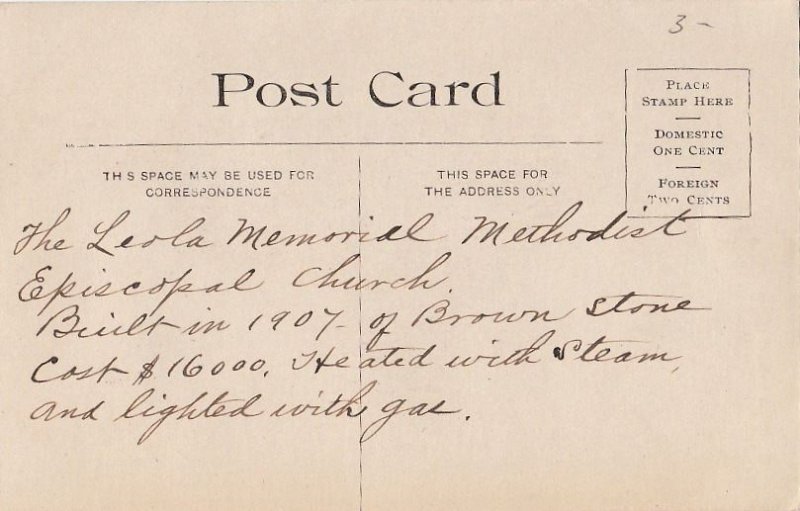 3-
Post Card
PLACE
STAMP HERE
DOMESTIC
ONE CENT
FOREIGN
TWO CENTS
THIS SPACE MAY BE USED FOR
CORRESPONDENCE
THIS SPACE FOR
THE ADDRESS ONLY
The Leola Memorial Methodist
Episcopal Church.
Built in 1907 - of Brown Stone
Cost $16000. Heated with Steam,
and lighted with gas.